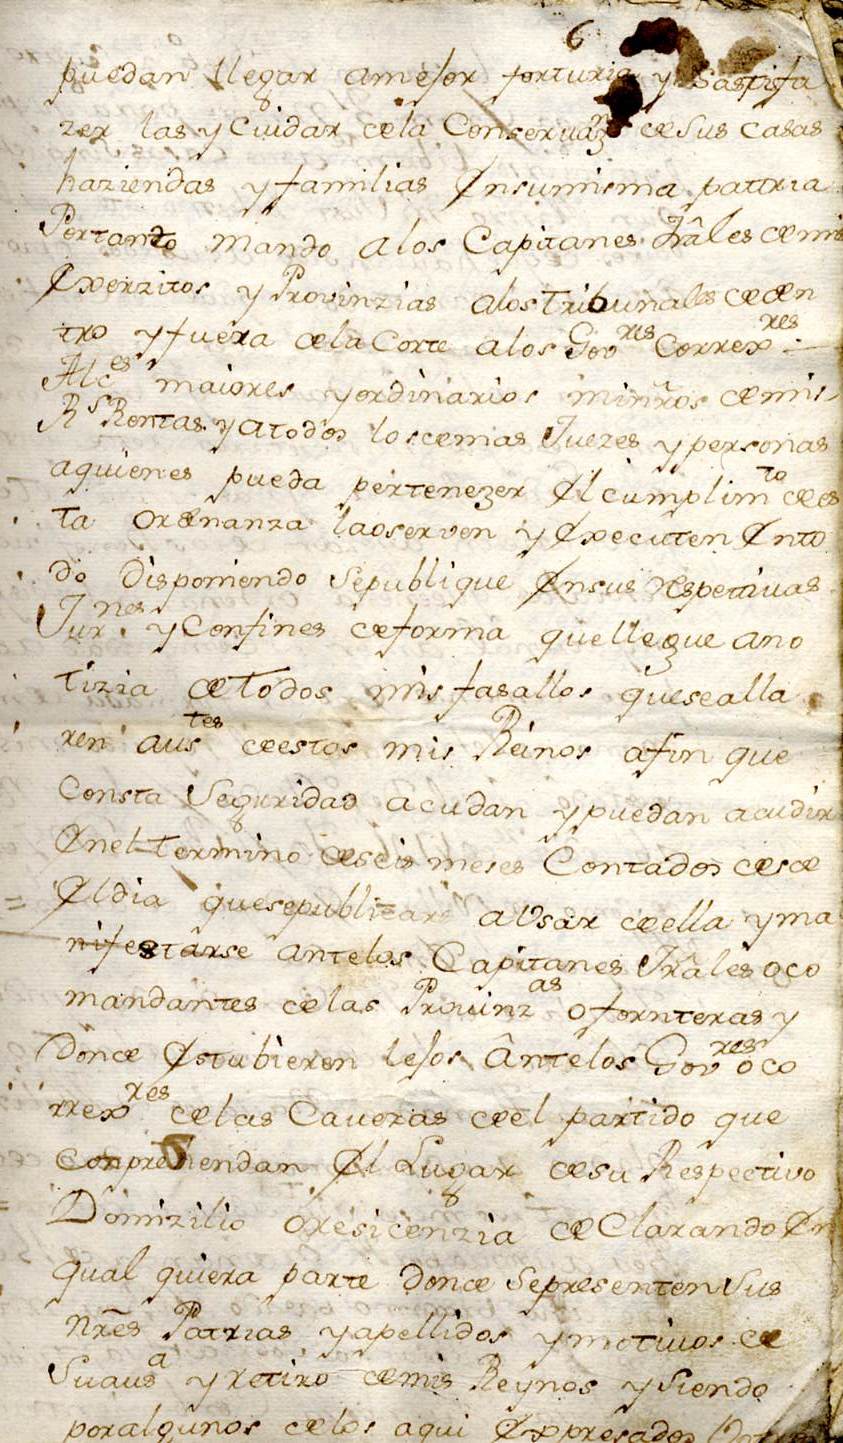 6
puedan llegar amejor forturia y Sastifa
zer las y Cuidar dela Conservaz.n de Sus casas
haziendas y familias Ensumisma pattria
Portanto mando alos Capitanes Jrâles demis
Exerzitos y Provinzias alos Tribunales deden
tro y fuera dela Corte alos Gov.res Correx.res
Alc.es maiores y ordinarios minr̃os demis
R.s Rentas y atodos losdemas Juezes y personas
aquienes pueda pertenezer El cumplim.to dees
ta ordenanza laoserven y Executen Ento
do Disponiendo Sepublique Ensus respettivas
Jur.nes y Confines deforma quellegue ano
tizia deTodos mis fasallos quesealla
ren aus.tes deestos mis Reinos afin que
Consta Seguridad acudan y puedan acudir
Enel Termino deseis meses Contados desde
= Eldia quesepublicare aVsar deella y ma
nifestarse antelos Capitanes Jrâles oco
mandantes delas Provinz.as ofornteras y
Donde Estubieren lejos Antelos Gov.res oco
rrex.res delas Caveras deel partido que
conprehendan El Lugar desu Respectivo
Domizilio oresidenzia deClarando En
qual quiera parte donde Sepresenten Sus
Nrẽs Patrias y apellidos y motivos de
Suaus.a y retiro demis Reynos y Siendo
poralgunos delos aqui Expresados